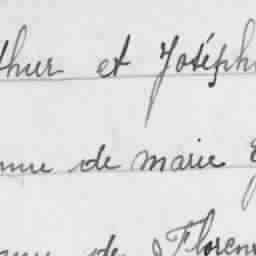 thur et Joséph
nne de marie
de Floren